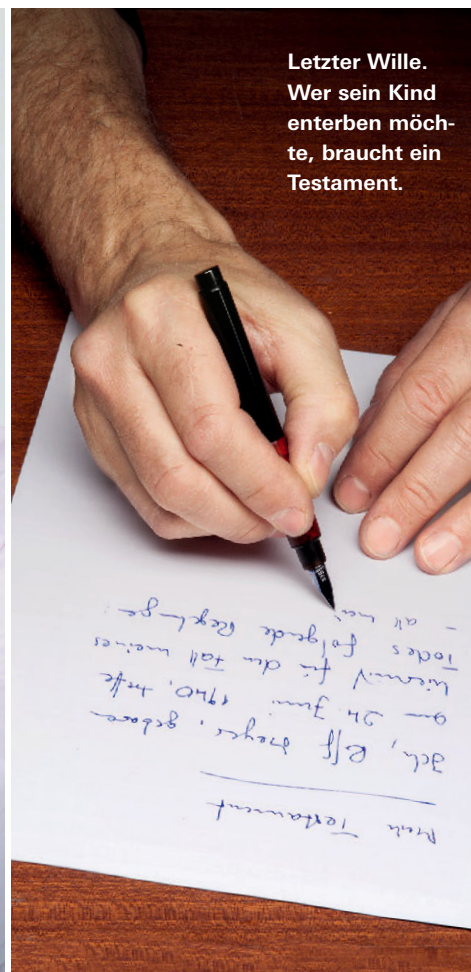 Letzter Wille.
Wer sein Kind
enterben möch-
te, braucht ein
Testament.
Mein Testament
Ich, geboren
am 24. Juni 1940, treffe
hiermit für den Fall meines
Todes folgende Regelung:
- all mein